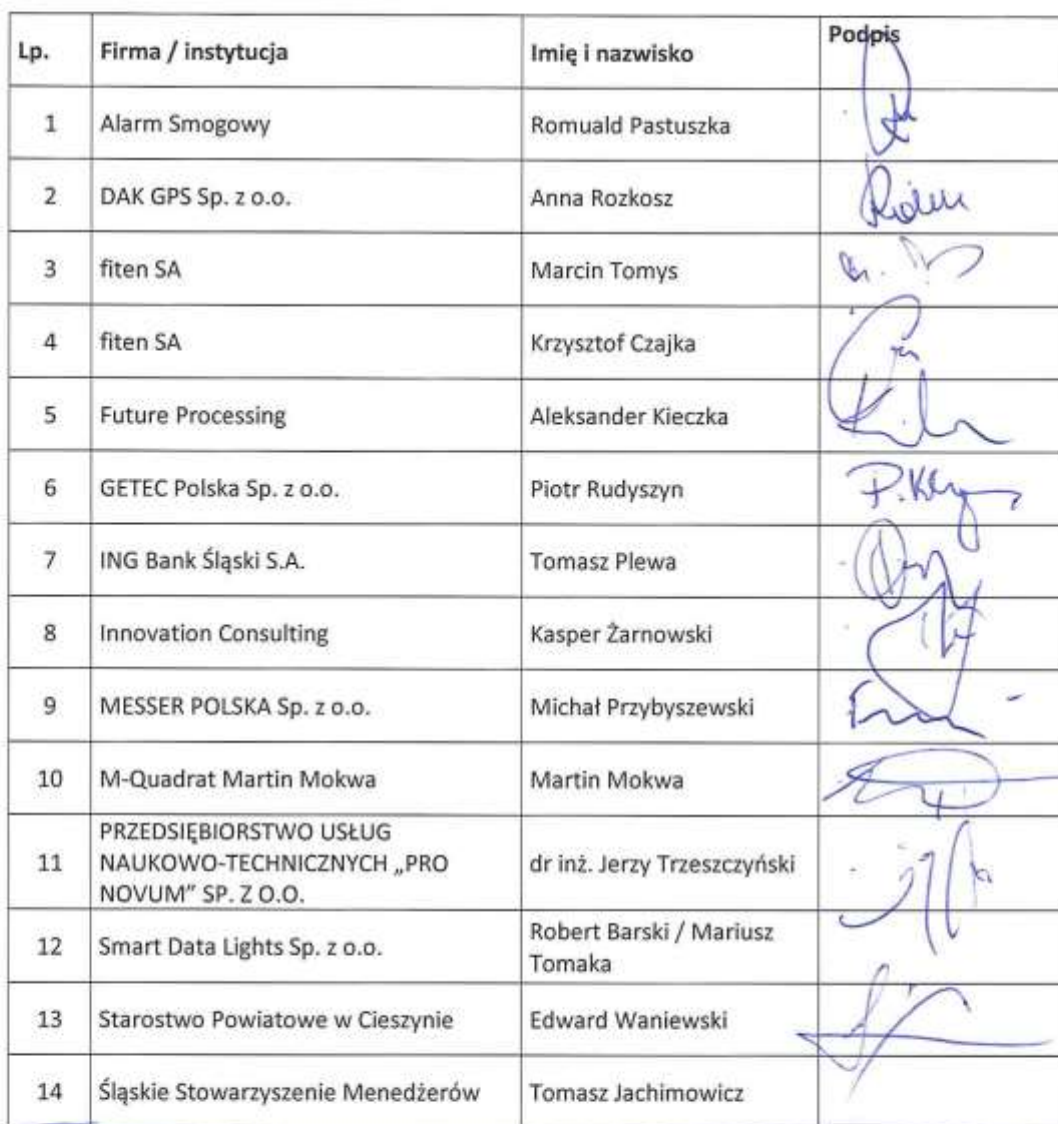 Lp. Firma / instytucja Imię i nazwisko Podpis
1 Alarm Smogowy Romuald Pastuszka
2 DAK GPS Sp. z o.o. Anna Rozkosz
3 fiten SA Marcin Tomys
4 fiten SA Krzysztof Czajka
5 Future Processing Aleksander Kieczka
6 GETEC Polska Sp. z o.o. Piotr Rudyszyn
7 ING Bank Śląski S.A. Tomasz Plewa
8 Innovation Consulting Kasper Żarnowski
9 MESSER POLSKA Sp. z o.o. Michał Przybyszewski
10 M-Quadrat Martin Mokwa Martin Mokwa
PRZEDSIĘBIORSTWO USŁUG
11 NAUKOWO-TECHNICZNYCH „PRO dr inż. Jerzy Trzeszczyński
NOVUM” SP. Z O.O.
12 Smart Data Lights Sp. z o.o. Robert Barski / Mariusz
Tomaka
13 Starostwo Powiatowe w Cieszynie Edward Waniewski
14 Śląskie Stowarzyszenie Menedżerów Tomasz Jachimowicz